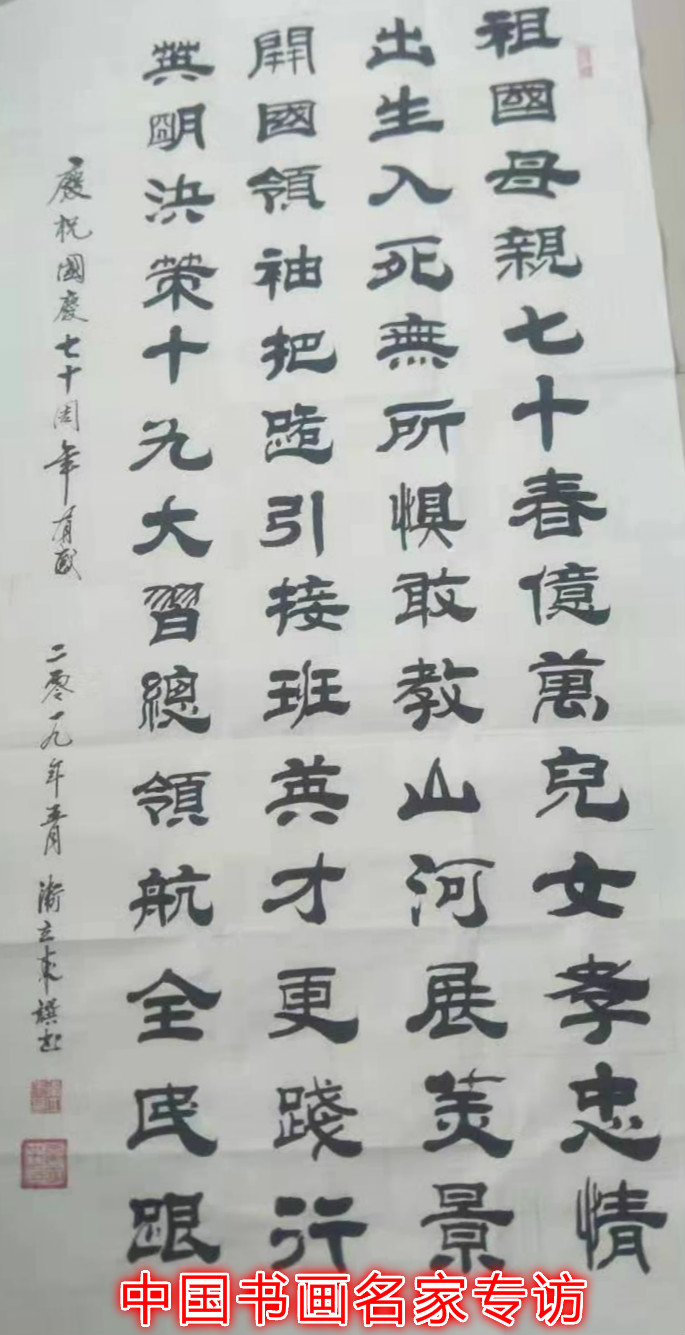 祖國母親七十春億萬兒女孝忠情
出生入死無所惧敢教山河展美景
開國領袖把路引接班英才更踐行
英明決策十九大習總領航全民跟
慶祝國慶七十周年有感 二零一九年五月
中国书画名家专访